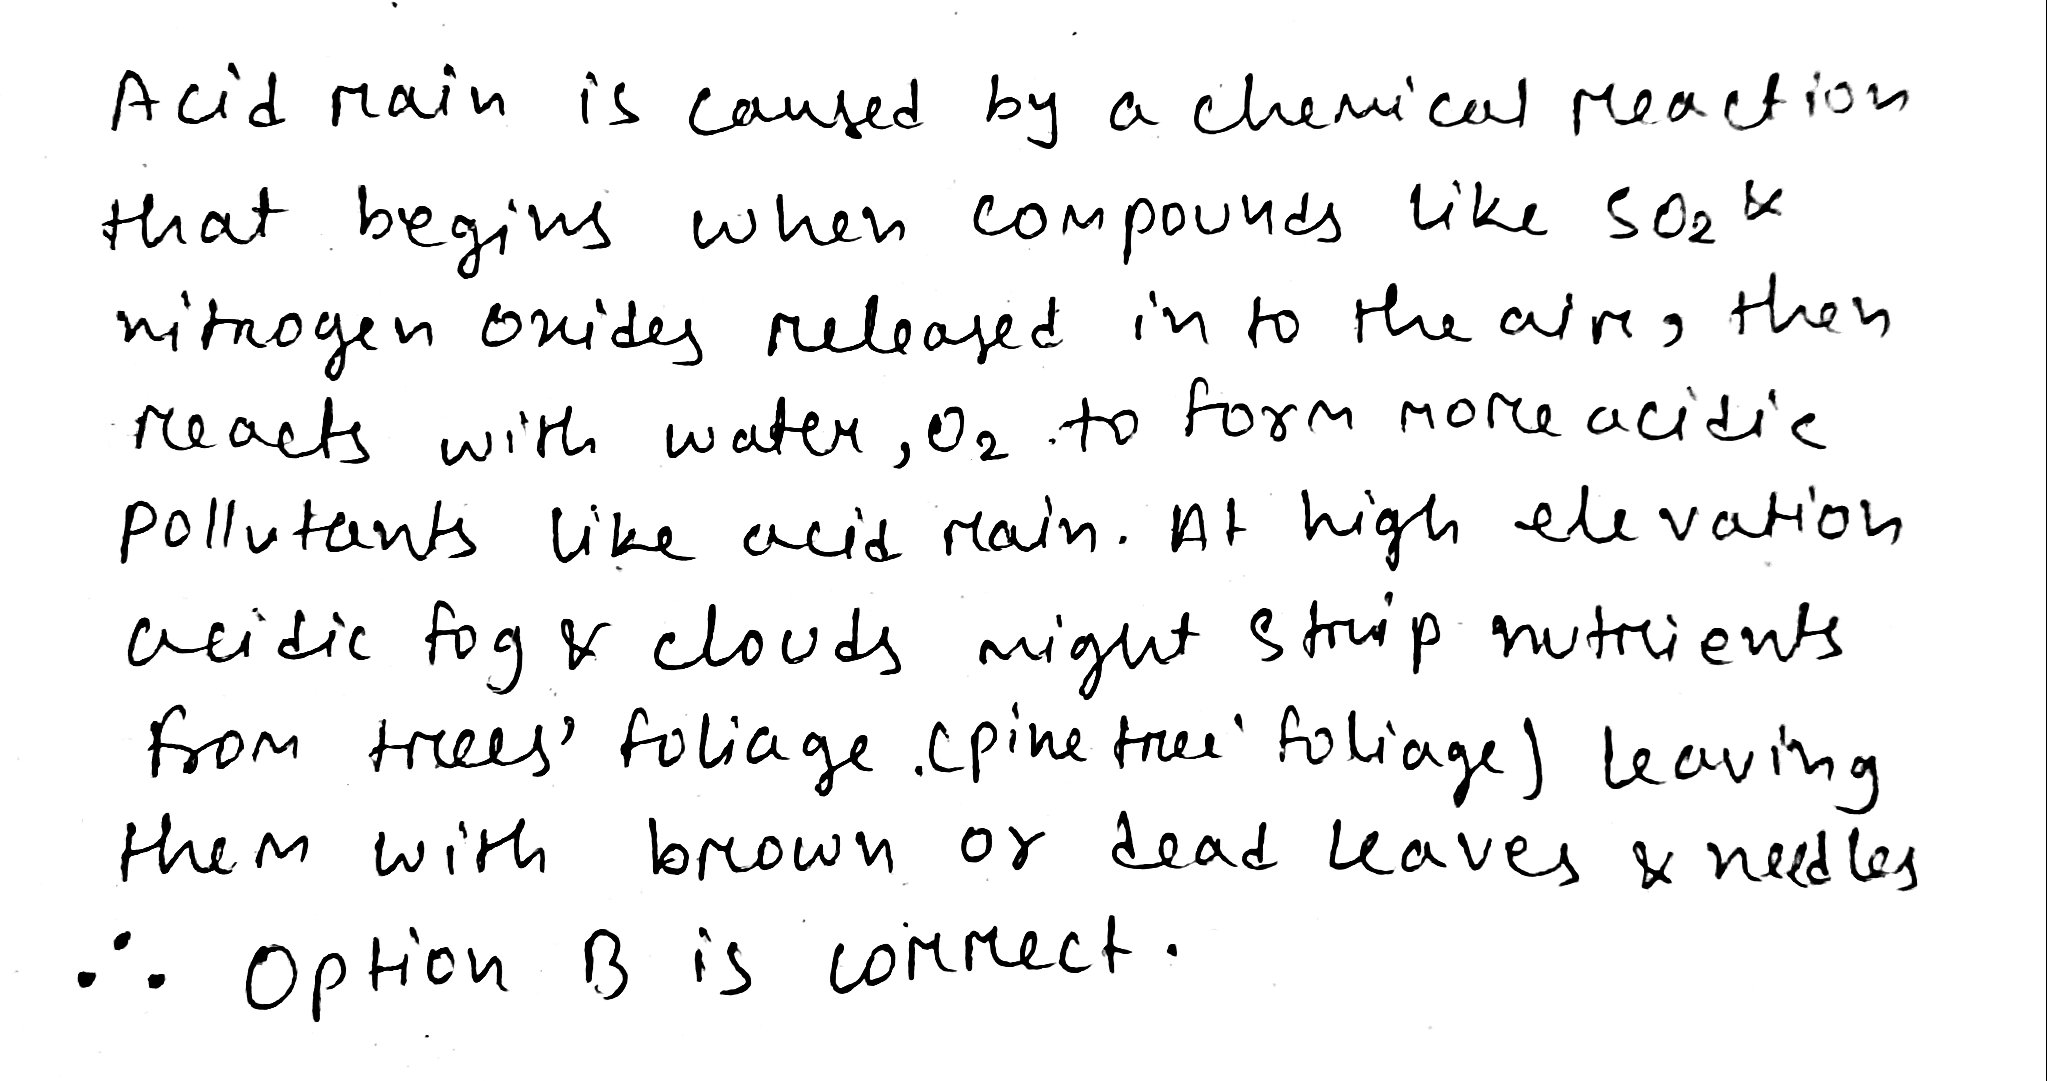 Acid rain is caused by a chemical reaction
that begins when compounds like SO₂ &
nitrogen oxides released in to the air, then
reacts with water, O₂ to form more acidic
pollutants like acid rain. At high elevation
acidic fog & clouds might strip nutrients
from trees' foliage (pine tree' foliage) leaving
them with brown or dead leaves & needles
∴ Option B is correct.